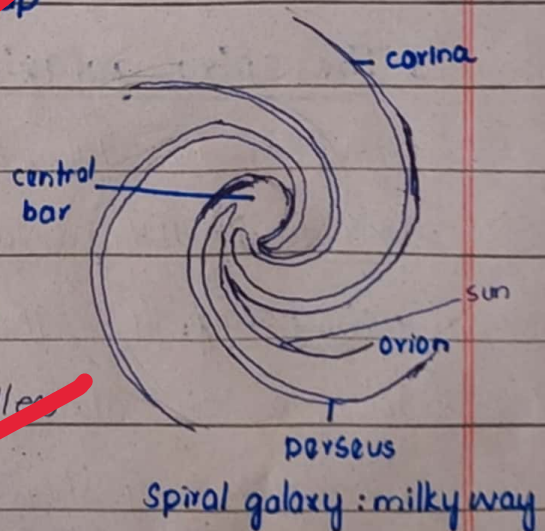 corina
central
bar
sun
orion
perseus
spiral galaxy : milky way